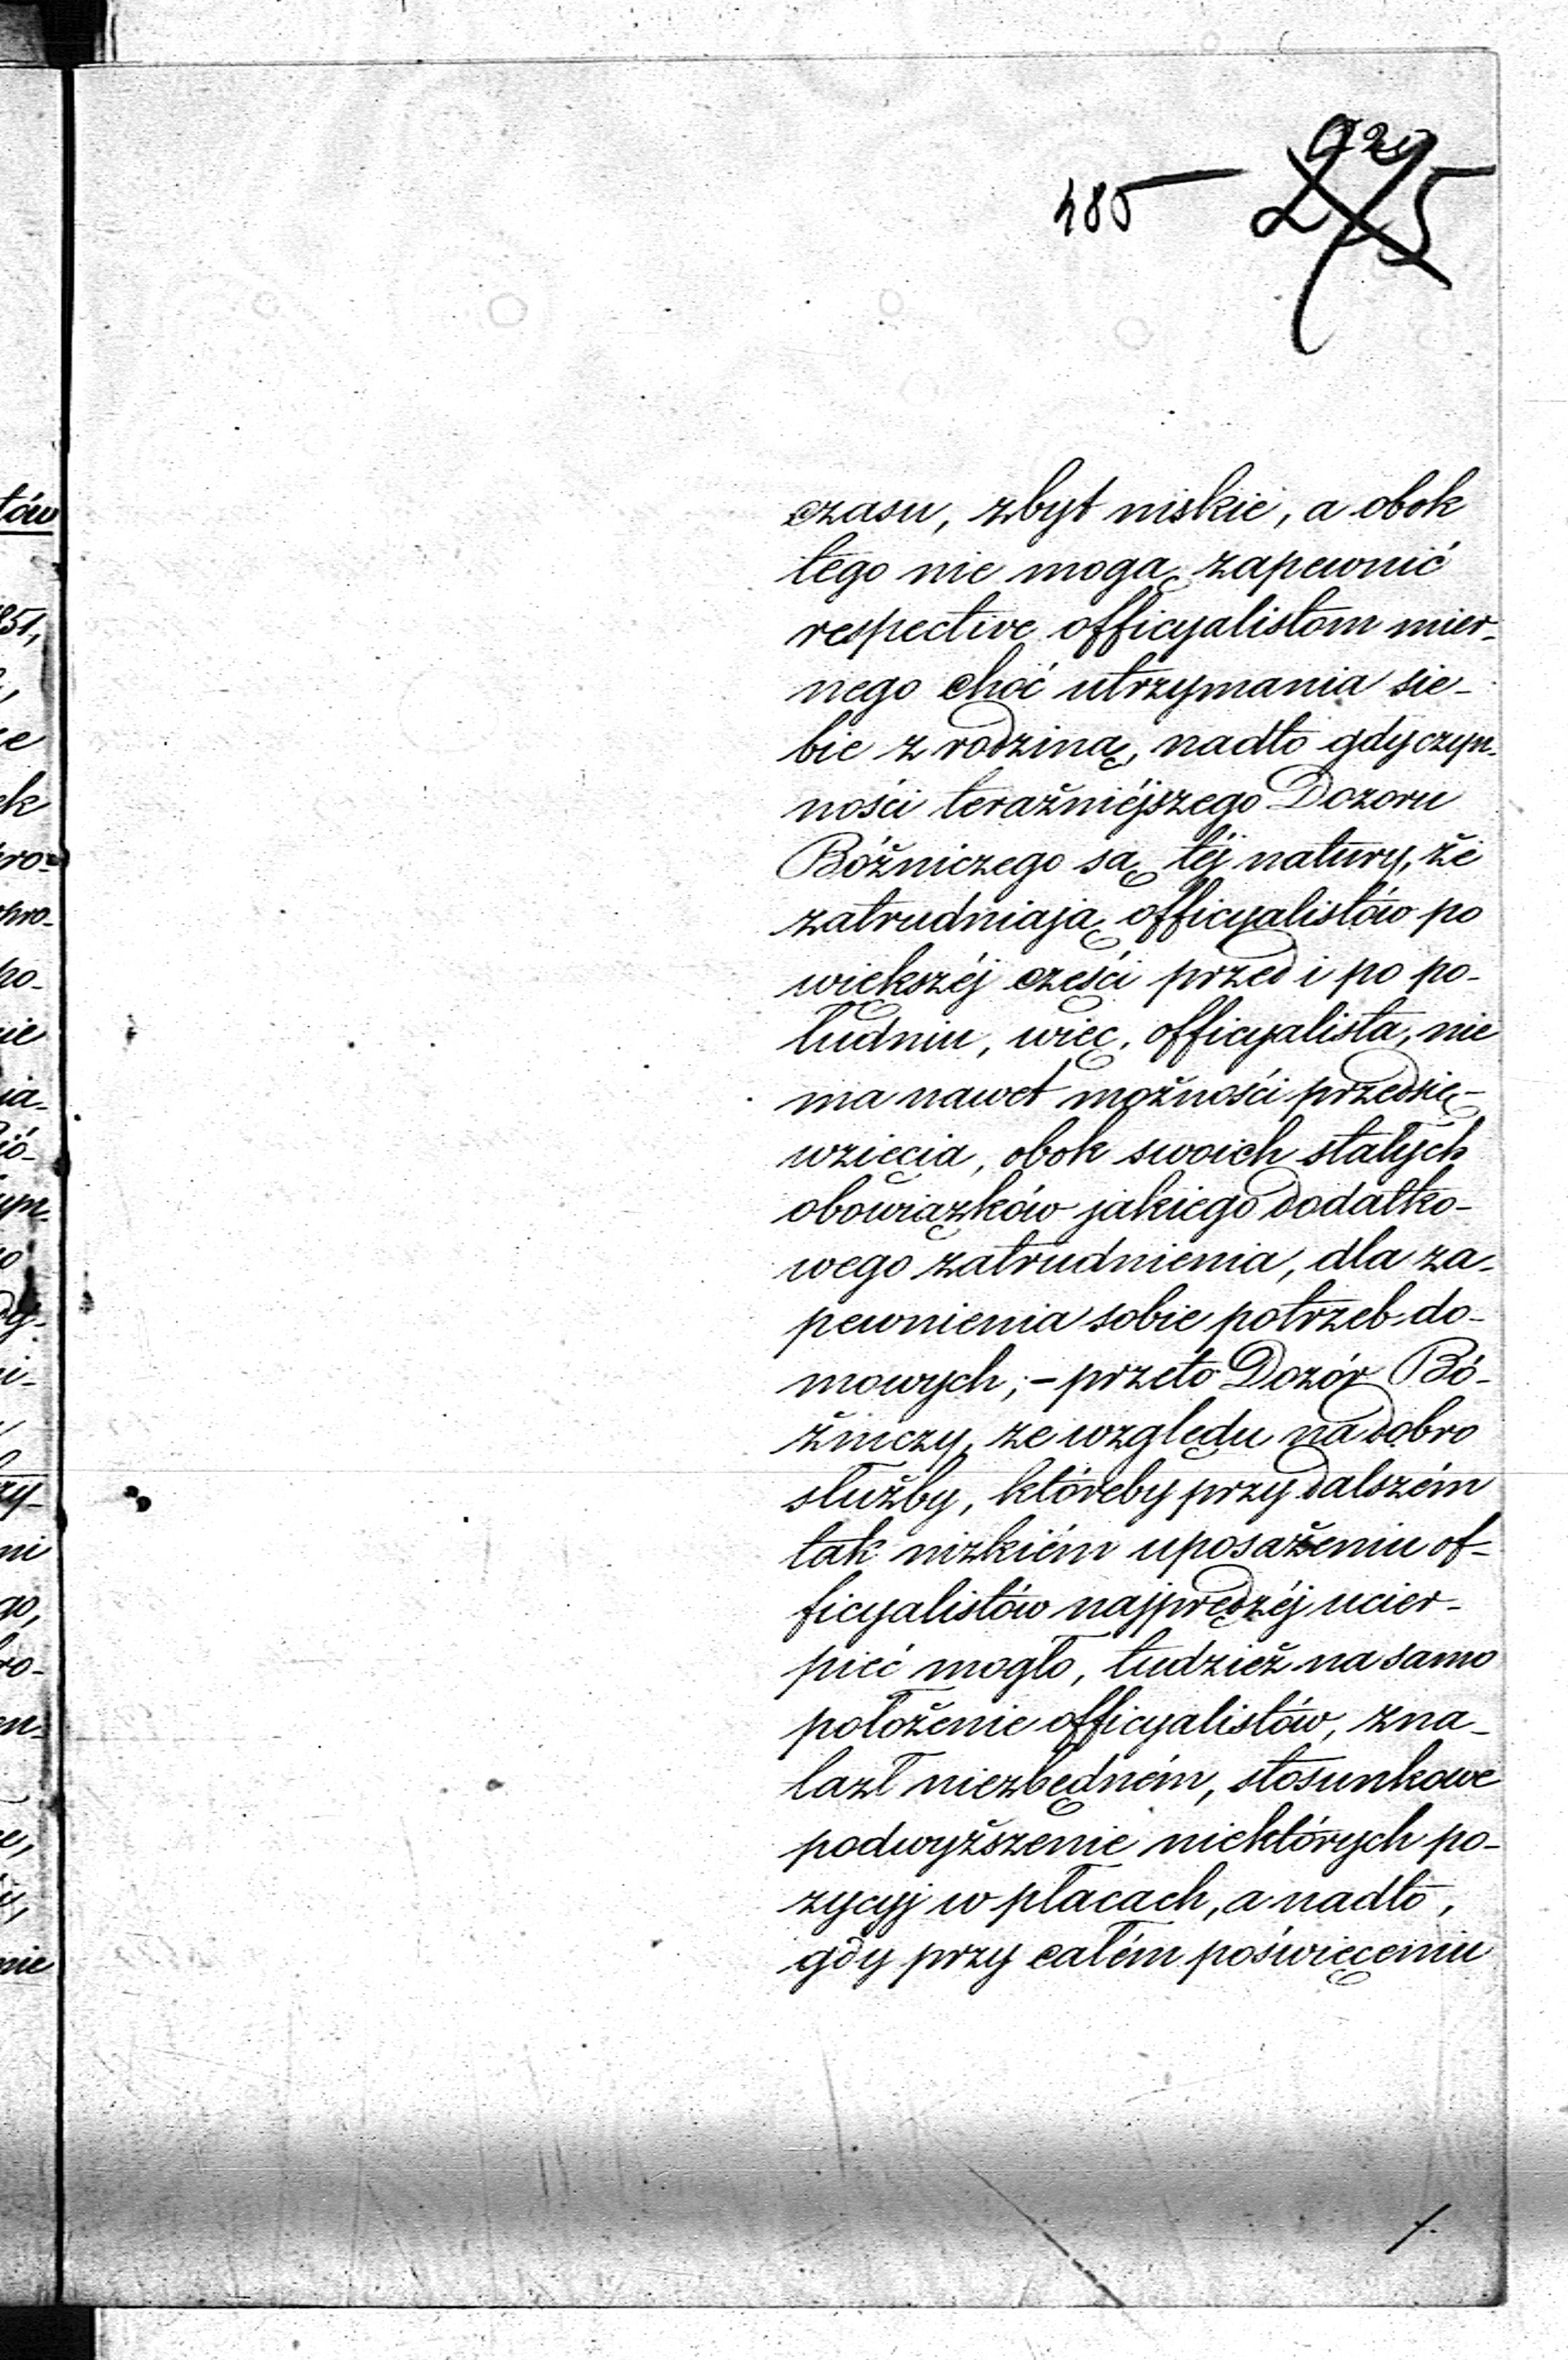 485
czasu, zbyt niskie, a obok
tego nie mogą zapewnić
respective officyalistom mier-
nego choć utrzymania sie-
bie z rodziną, nadto gdy czyn-
ności teraźniéjszego Dozoru
Bóżniczego są téj natury, że
zatrudniają officyalistów po
większéj części przed i po po-
łudniu, więc, officyalista, nie
ma nawet możności przedsię-
wzięcia, obok swoich stałych
obowiązków jakiego dodatko-
wego zatrudnienia, dla za-
pewnienia sobie potrzeb do-
mowych; – przeto Dozór Bó-
żniczy, ze względu na dobro
służby, któreby przy dalszém
tak nizkiém uposażeniu of-
ficyalistów najprędzéj ucier-
pieć mogło, tudzież na samo
położenie officyalistów, zna-
lazł niezbędném, stosunkowe
podwyższenie niektórych po-
zycyj w płacach, a nadto,
gdy przy całém poświęceniu